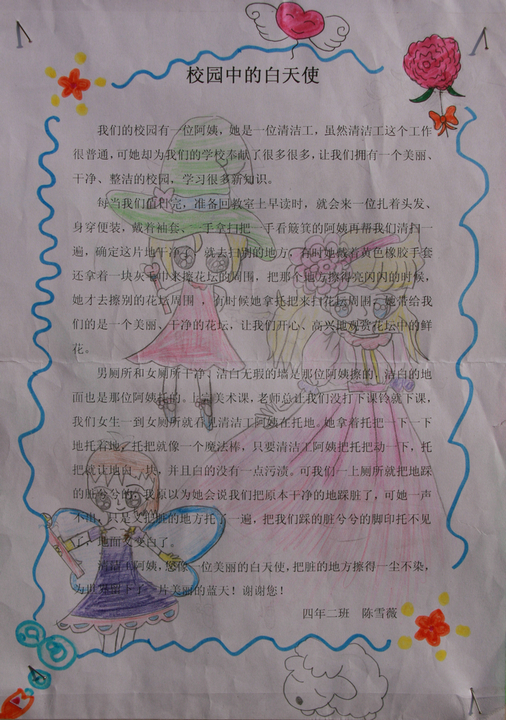 校园中的白天使
我们的校园有一位阿姨，她是一位清洁工，虽然清洁工这个工作
很普通，可她却为我们的学校奉献了很多很多，让我们拥有一个美丽、
干净、整洁的校园，学习很多新知识。
每当我们值日完，准备回教室上早读时，就会来一位扎着头发、
身穿便装，戴着袖套、一手拿扫把一手看簸箕的阿姨再帮我们清扫一
遍，确定这片地干净了，就去扫别的地方，有时她戴着黄色橡胶手套
还拿着一块灰毛巾来擦花坛的周围，把那个地方擦得亮闪闪的时候，
她才去擦别的花坛周围，有时候她拿托把来扫花坛周围，她带给我
们的是一个美丽、干净的花坛，让我们开心、高兴地观赏花坛中的鲜
花。
男厕所和女厕所干净，洁白无瑕的墙是那位阿姨擦的，洁白的地
面也是那位阿姨托的。上完美术课，老师总让我们没打下课铃就下课，
我们女生一到女厕所就看见清洁工阿姨在托地。她拿着托把一下一下
地托着地，托把就像一个魔法棒，只要清洁工阿姨把托把动一下，托
把就让地白一块，并且白的没有一点污渍。可我们一上厕所就把地踩
的脏兮兮的，我原以为她会说我们把原本干净的地踩脏了，可她一声
不出，只是又把脏的地方托了一遍，把我们踩的脏兮兮的脚印托不见
了，地面又变白了。
清洁工阿姨，您像一位美丽的白天使，把脏的地方擦得一尘不染，
为世界留下了一片美丽的蓝天！谢谢您！
四年二班 陈雪薇